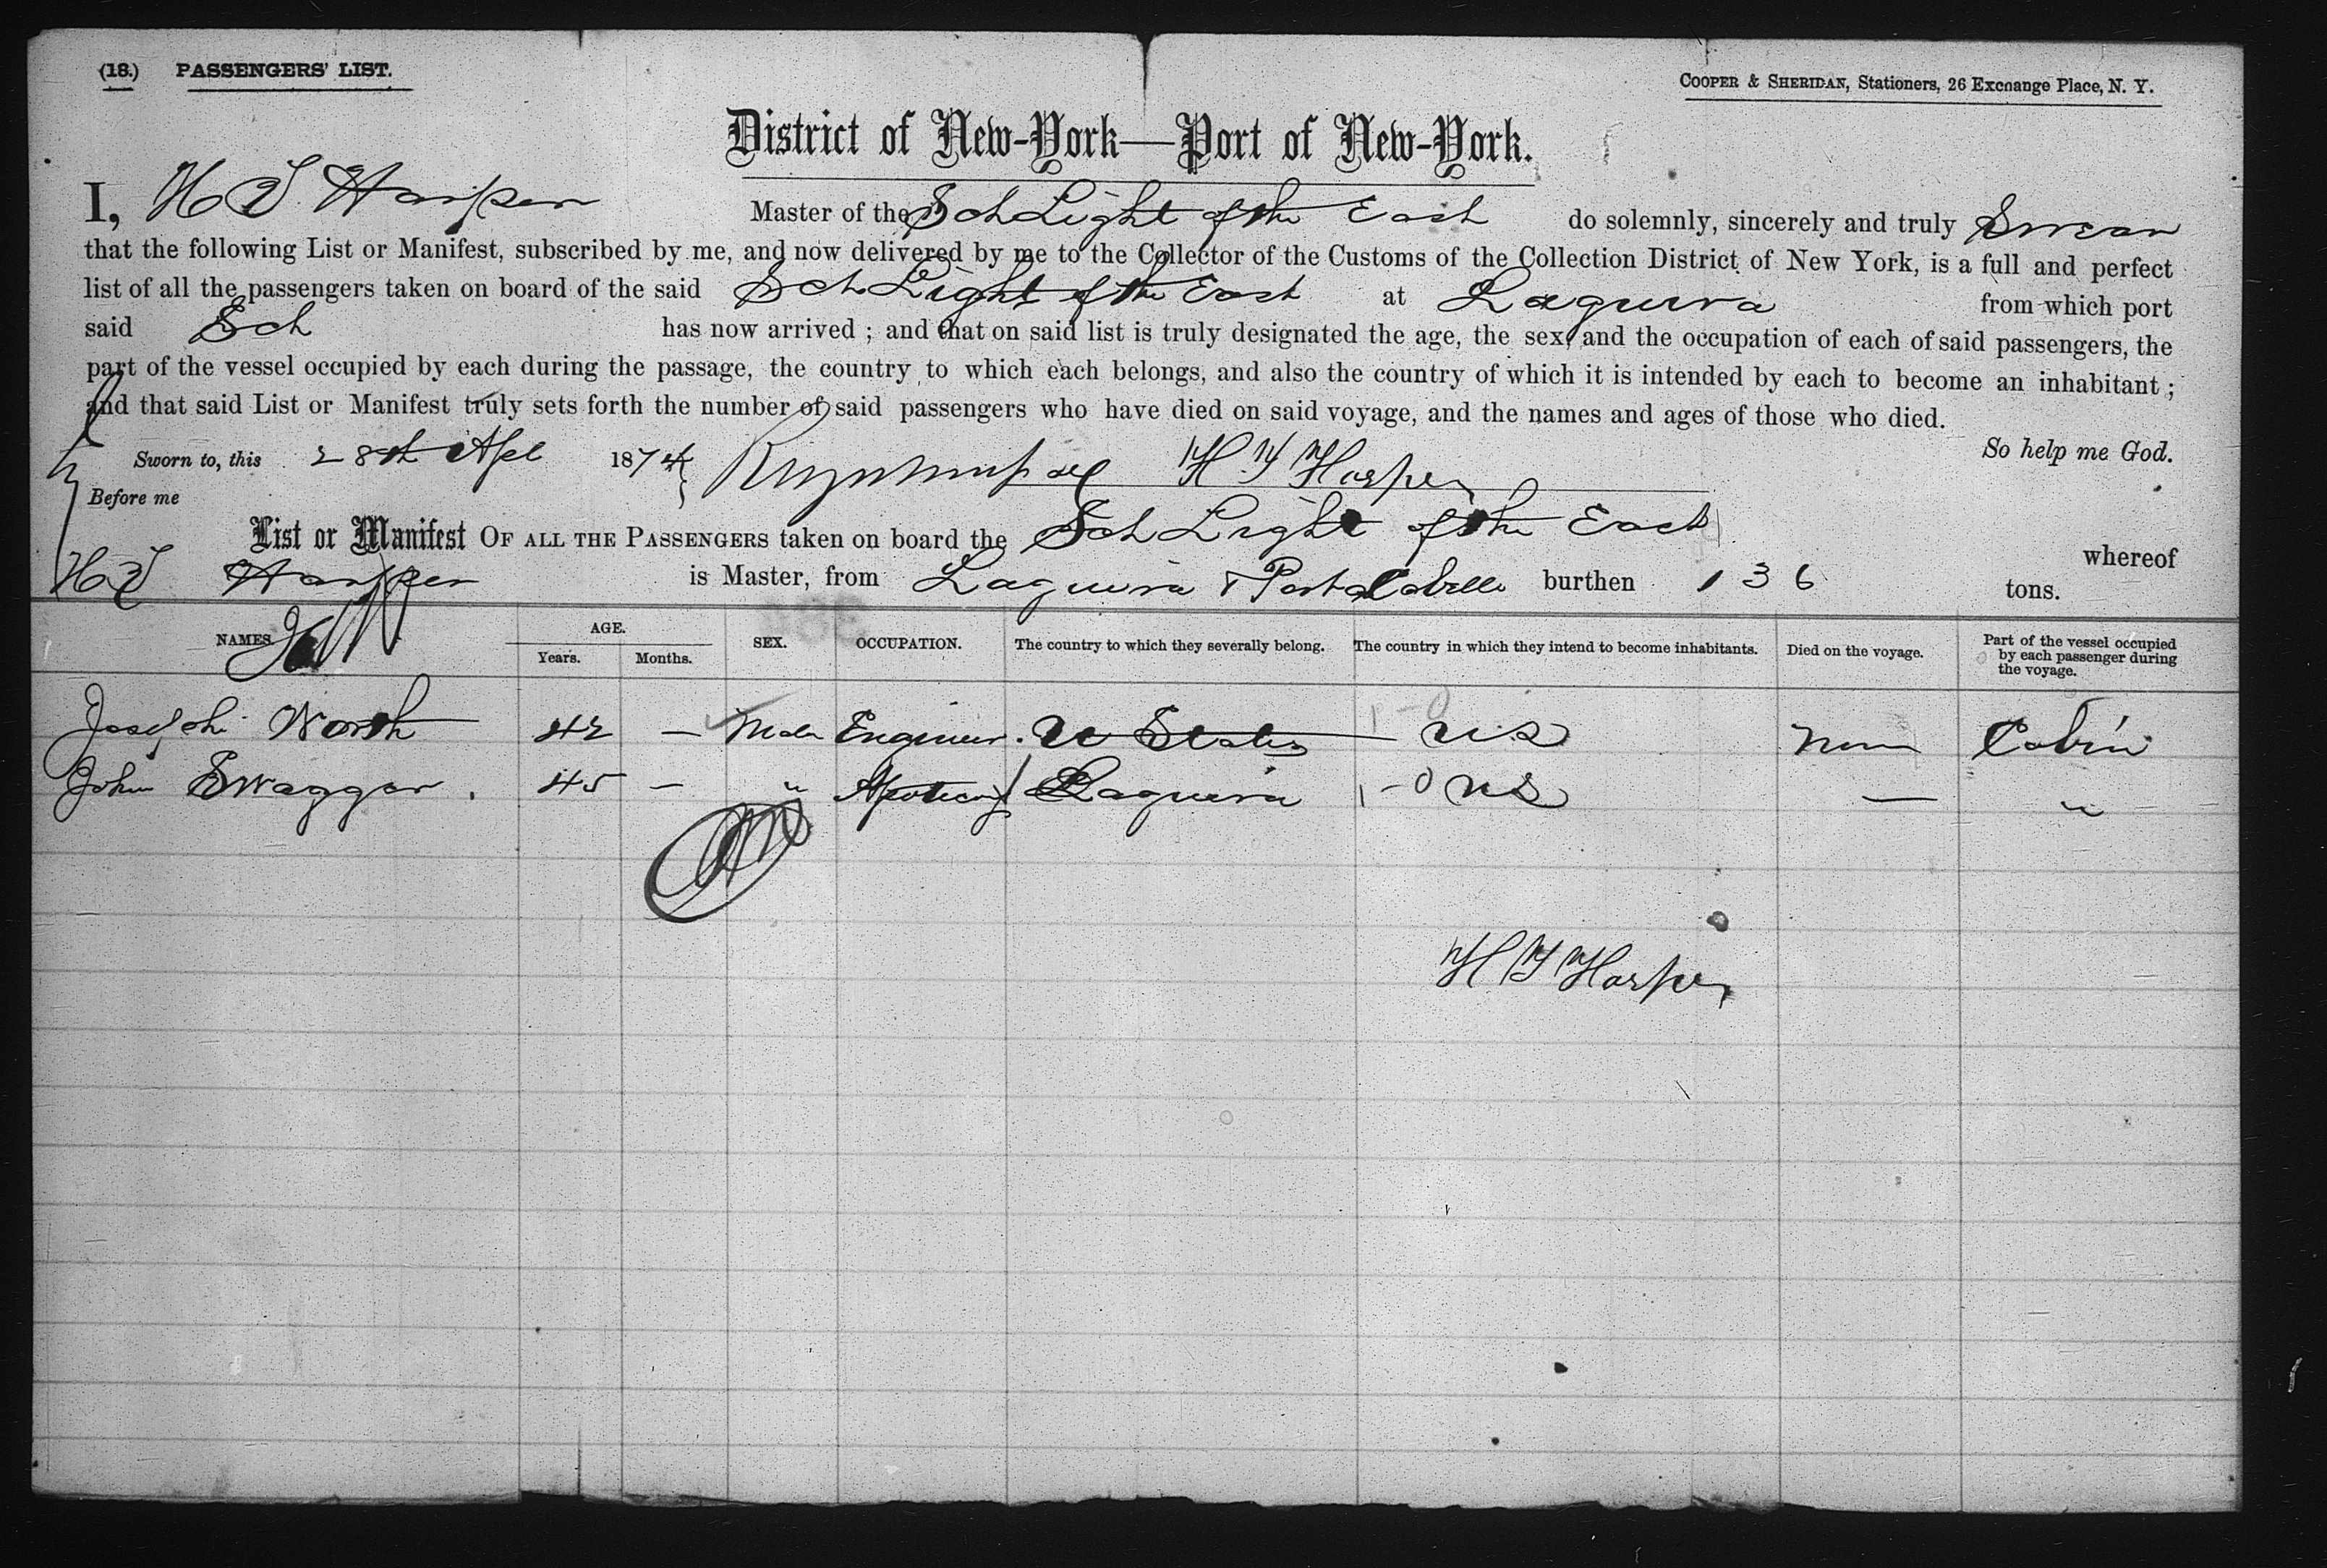 (18.) PASSENGERS' LIST.
COOPER & SHERIDAN, Stationers, 26 Exchange Place, N. Y.
District of New-York—Port of New-York.
I, H T. Harper Master of the Sch Light of the East do solemnly, sincerely and truly Swear
that the following List or Manifest, subscribed by me, and now delivered by me to the Collector of the Customs of the Collection District of New York, is a full and perfect
list of all the passengers taken on board of the said Sch Light of the East at Laguira from which port
said Sch has now arrived ; and that on said list is truly designated the age, the sex, and the occupation of each of said passengers, the
part of the vessel occupied by each during the passage, the country to which each belongs, and also the country of which it is intended by each to become an inhabitant ;
and that said List or Manifest truly sets forth the number of said passengers who have died on said voyage, and the names and ages of those who died.
So help me God.
Sworn to, this 28th Apl 1874 H T Harper
Before me
List or Manifest OF ALL THE PASSENGERS taken on board the Sch Light of the East whereof
H T Harper is Master, from Laguira & Porto Cabello burthen 136 tons.
NAMES AGE. Years. Months. SEX. OCCUPATION. The country to which they severally belong. The country in which they intend to become inhabitants. Died on the voyage. Part of the vessel occupied by each passenger during the voyage.
Joseph North 42 — Male Engineer. U States U S None Cabin
John Swaggar. 45 — " Apotecary Laguira 1-0 U S — "
H T Harper